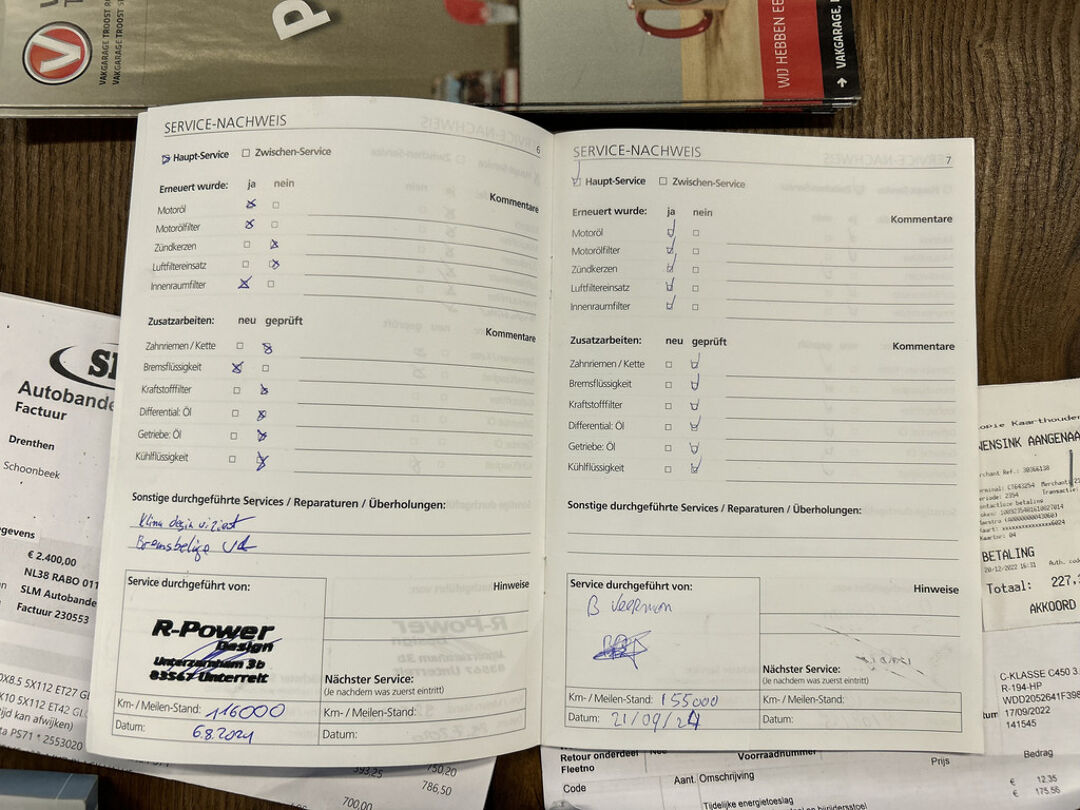 V
VAKGARAGE TROOST
VAKGARAGE TROOST
P
WIJ HEBBEN EE
→ VAKGARAGE,
SERVICE-NACHWEIS
6
Haupt-Service Zwischen-Service
Erneuert wurde: ja nein
Kommentare
Motoröl
Motorölfilter
Zündkerzen
Luftfiltereinsatz
Innenraumfilter
Zusatzarbeiten: neu geprüft
Kommentare
Zahnriemen / Kette
Bremsflüssigkeit
Kraftstofffilter
Differential: Öl
Getriebe: Öl
Kühlflüssigkeit
Sonstige durchgeführte Services / Reparaturen / Überholungen:
Klima desinviziert
Bremsbeläge
Service durchgeführt von:
Hinweise
R-Power
Design
Unterzarnham 3b
83567 Unterreit
Nächster Service:
(Je nachdem was zuerst eintritt)
Km- / Meilen-Stand: 116000
Km- / Meilen-Stand:
Datum: 6.8.2021
Datum:
SERVICE-NACHWEIS
7
Haupt-Service Zwischen-Service
Erneuert wurde: ja nein
Kommentare
Motoröl
Motorölfilter
Zündkerzen
Luftfiltereinsatz
Innenraumfilter
Zusatzarbeiten: neu geprüft
Kommentare
Zahnriemen / Kette
Bremsflüssigkeit
Kraftstofffilter
Differential: Öl
Getriebe: Öl
Kühlflüssigkeit
Sonstige durchgeführte Services / Reparaturen / Überholungen:
Service durchgeführt von:
Hinweise
B Veerman
Nächster Service:
(Je nachdem was zuerst eintritt)
Km- / Meilen-Stand: 155000
Km- / Meilen-Stand:
Datum: 21/09/24
Datum:
Autobande
Factuur
Drenthen
Schoonbeek
gevens
€ 2.400,00
NL38 RABO 011
SLM Autobande
Factuur 230553
0X8.5 5X112 ET27
X10 5X112 ET42
ijd kan afwijken)
ta P571 * 2553020
593,25
750,20
786,50
700,00
opie Kaarthouder
WENSINK AANGENAA
rchant Ref.: 30366138
rminal: CT643254
eriode: 2354 Transactie:
ntactloze betaling
BETALING
20/12/2022 16:31 Auth. cod
Totaal: 227,
AKKOORD
C-KLASSE C450 3.
R-194-HP
WDD2052641F398
17/09/2022
141545
Retour onderdeel Nee Voorraadnummer Prijs
Bedrag
Fleetno
Code Aant. Omschrijving
€ 12.35
€ 175.56
Tijdelijke energietoeslag